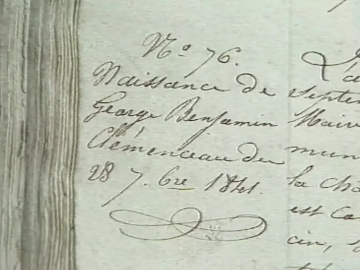 N.o 76.
Naissance de
George Benjamin
Clémenceau du
28 7.bre 1841.
L'a
septem
Maire
mun
la cha
est Co
cin,